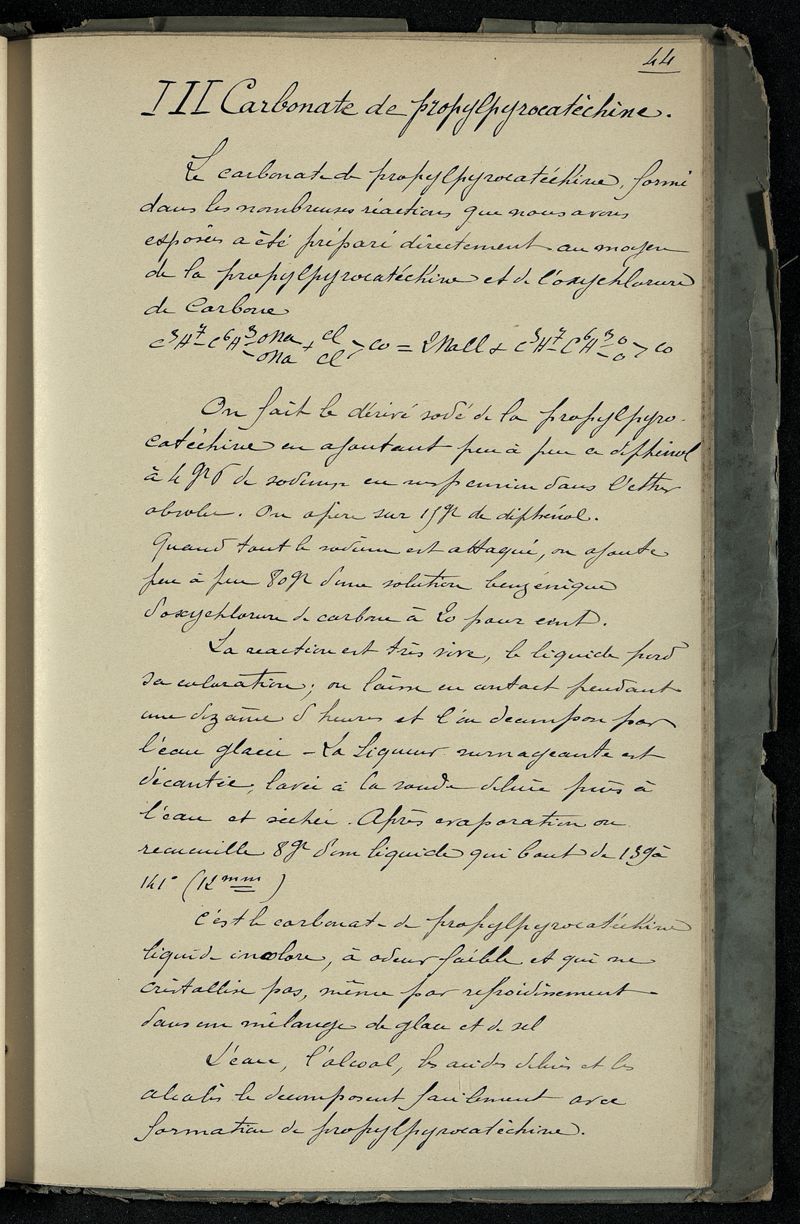 44
III Carbonate de propylpyrocatéchine.
Le carbonate de propylpyrocatéchine, formé
dans les nombreuses réactions que nous avons
exposées a été préparé directement au moyen
de la propylpyrocatéchine et de l'oxychlorure
de Carbone
C³H⁷-C⁶H³-ONa-ONa + Cl Cl > CO = 2NaCl + C³H⁷-C⁶H³-O-O > CO
On fait le dérivé sodé de la propylpyro-
catéchine en ajoutant peu à peu ce diphénol
à 4gr6 de sodium en suspension dans l'ether
absolu. On opère sur 15gr de diphénol.
Quand tout le sodium est attaqué, on ajoute
peu à peu 80gr d'une solution benzénique
d'oxychlorure de carbone à 20 pour cent.
La reaction est très vive, le liquide perd
sa coloration; on laisse en contact pendant
une dizaine d'heures et l'on decompose par
l'eau glacée - La Liqueur surnageante est
décantée, lavée à la soude diluée puis à
l'eau et séchée. Après evaporation on
recueuille 8gr d'un liquide qui bout de 139 à
141° (12mm)
C'est le carbonate de propylpyrocatéchine
liquide incolore, à odeur faible et qui ne
cristallise pas, même par refroidissement
dans un mélange de glace et de sel
L'eau, l'alcool, les acides dilués et les
alcalis le decomposent facilement avec
formation de propylpyrocatéchine.